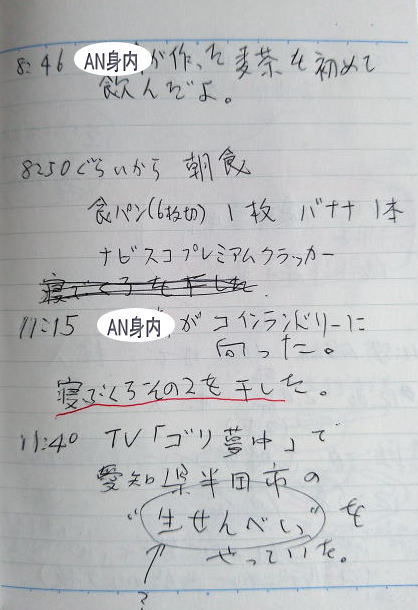 8:46 AN身内が作った麦茶を初めて
飲んだよ。
8:50ぐらいから 朝食
食パン(6枚切) 1枚 バナナ 1本
ナビスコプレミアムクラッカー
寝ぶくろを干した.
11:15 AN身内が コインランドリーに
向った。
寝ぶくろその2を干した。
11:40 TV「ゴリ夢中」で
愛知県半田市の
"生せんべい"を
やっていた。
?